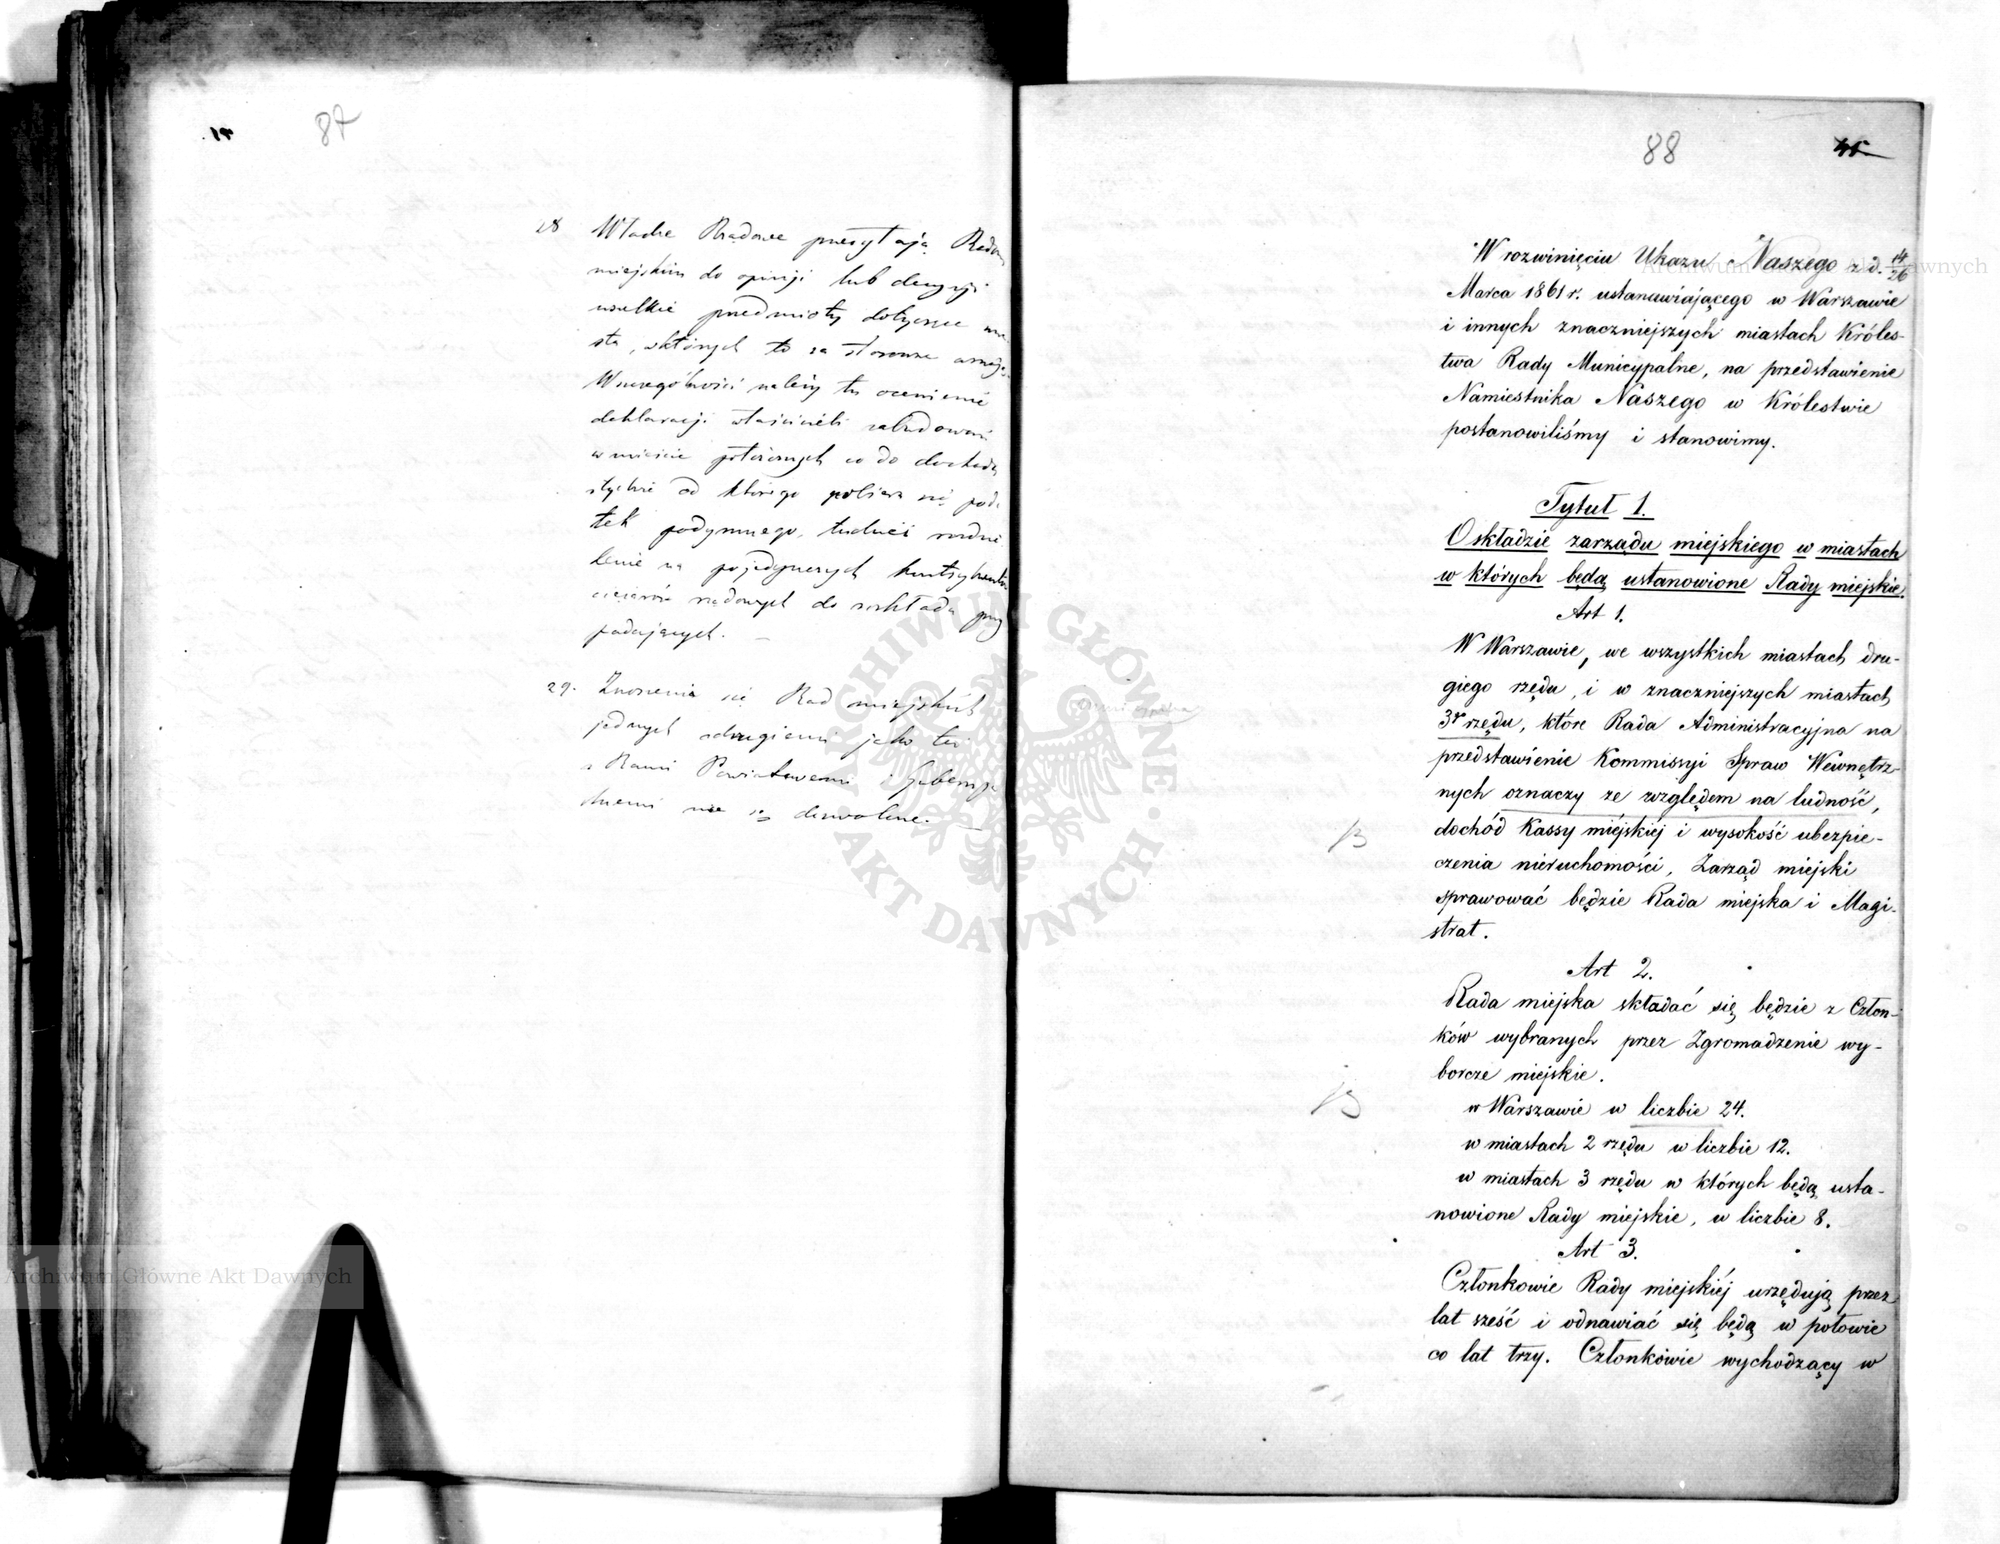 87
28 Władze Rządowe przesyłają Radom
miejskim do opinji lub decyzji
wszelkie przedmioty dotyczące mia-
sta, w których to za stosowne uznają.
W szczególności należy tu ocenienie
deklaracji właścicieli zabudowań
w mieście położonych co do dochodu
od którego pobiera się poda-
tek podymnego, tudzież rozdzie-
lenie na pojedynczych kontrybuentów
ciężarów rządowych do rozkładu przy-
padających.
29. Znoszenia się Rad miejskich
jednych z drugiemi jako też
z Radami Powiatowemi i Gubernjal-
nemi nie są dozwolone.
88
W rozwinięciu Ukazu Naszego z d. 14/26
Marca 1861 r. ustanawiającego w Warszawie
i innych znaczniejszych miastach Króles-
twa Rady Municypalne, na przedstawienie
Namiestnika Naszego w Królestwie
postanowiliśmy i stanowimy.
Tytuł 1.
O składzie zarządu miejskiego w miastach
w których będą ustanowione Rady miejskie.
Art 1.
W Warszawie, we wszystkich miastach dru-
giego rzędu, i w znaczniejszych miastach
3go rzędu, które Rada Administracyjna na
przedstawienie Kommissyi Spraw Wewnętrz-
nych oznaczy ze względem na ludność,
dochód Kassy miejskiej i wysokość ubezpie-
czenia nieruchomości, Zarząd miejski
sprawować będzie Rada miejska i Magi-
strat.
Art 2.
Rada miejska składać się będzie z Człon-
ków wybranych przez Zgromadzenie wy-
borcze miejskie.
w Warszawie w liczbie 24.
w miastach 2 rzędu w liczbie 12.
w miastach 3 rzędu w których będą usta-
nowione Rady miejskie, w liczbie 8.
Art 3.
Członkowie Rady miejskiéj urzędują przez
lat sześć i odnawiać się będą w połowie
co lat trzy. Członkowie wychodzący w
ARCHIWUM GŁÓWNE AKT DAWNYCH
Archiwum Główne Akt Dawnych
Archiwum Główne Akt Dawnych